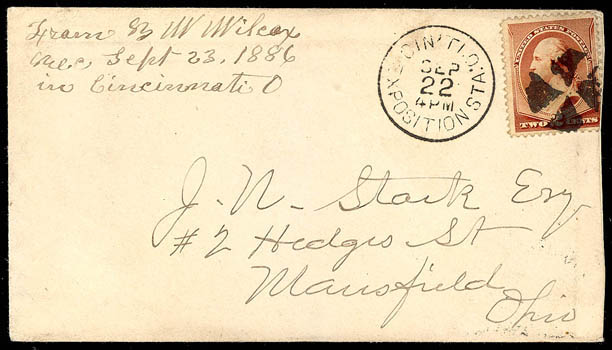 From E W Wilcox
Rec. Sept 23, 1886
in Cincinnati O
CIN'TI.O.
SEP
22
4PM
EXPOSITION STA.
UNITED STATES POSTAGE
TWO CENTS
J. N. Stark Esq
#2 Hedges St
Mansfield
Ohio